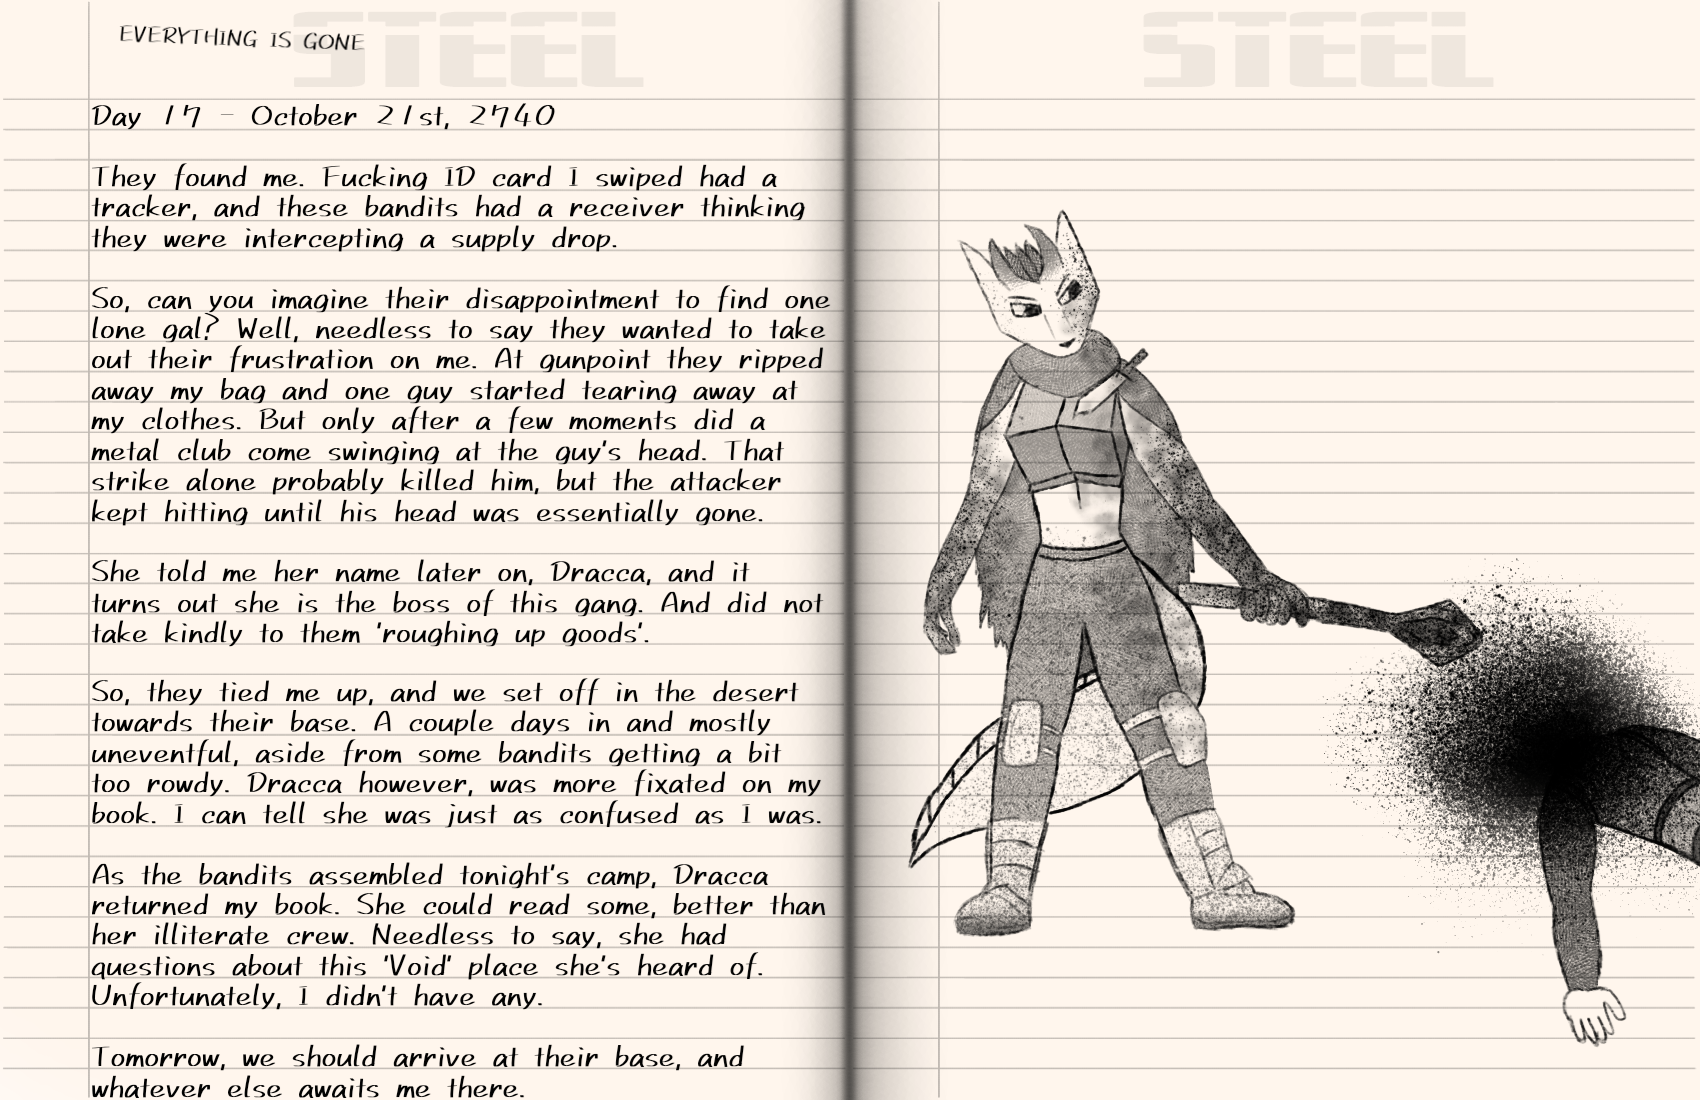 STEEL
STEEL
EVERYTHING IS GONE
Day 17 - October 21st, 2740
They found me. Fucking ID card I swiped had a
tracker, and these bandits had a receiver thinking
they were intercepting a supply drop.
So, can you imagine their disappointment to find one
lone gal? Well, needless to say they wanted to take
out their frustration on me. At gunpoint they ripped
away my bag and one guy started tearing away at
my clothes. But only after a few moments did a
metal club come swinging at the guy's head. That
strike alone probably killed him, but the attacker
kept hitting until his head was essentially gone.
She told me her name later on, Dracca, and it
turns out she is the boss of this gang. And did not
take kindly to them 'roughing up goods'.
So, they tied me up, and we set off in the desert
towards their base. A couple days in and mostly
uneventful, aside from some bandits getting a bit
too rowdy. Dracca however, was more fixated on my
book. I can tell she was just as confused as I was.
As the bandits assembled tonight's camp, Dracca
returned my book. She could read some, better than
her illiterate crew. Needless to say, she had
questions about this 'Void' place she's heard of.
Unfortunately, I didn't have any.
Tomorrow, we should arrive at their base, and
whatever else awaits me there.